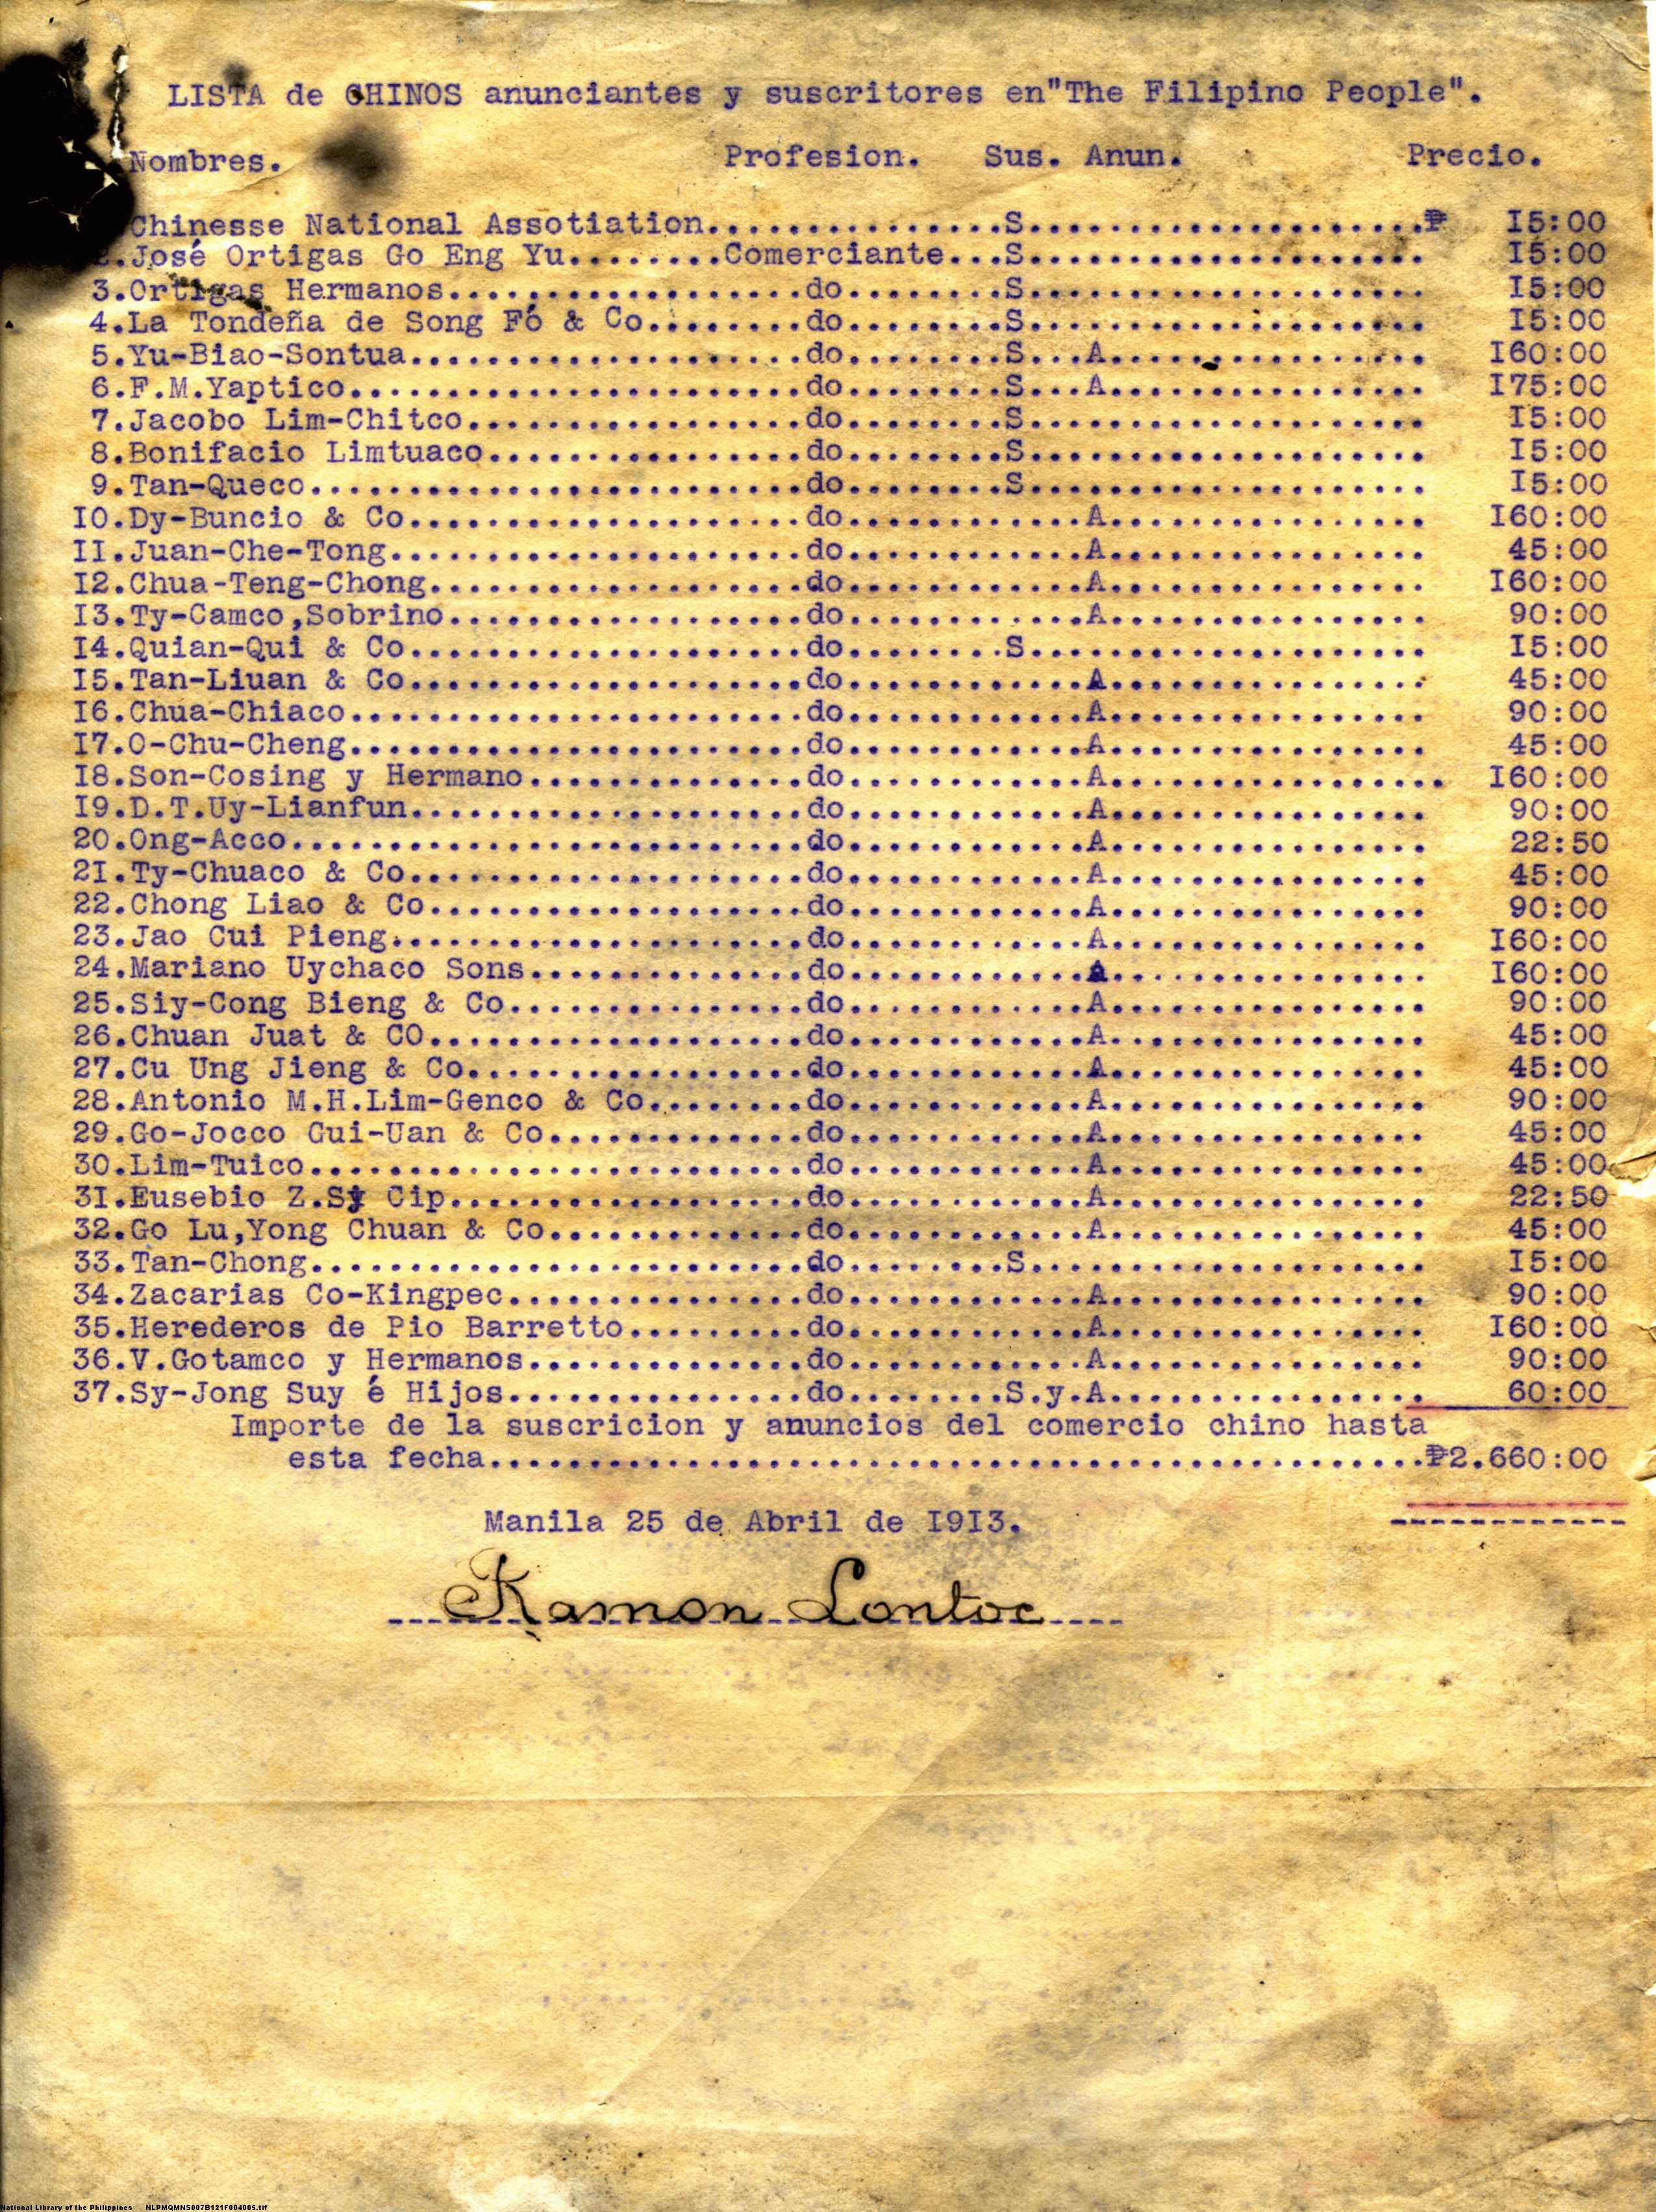 LISTA de CHINOS anunciantes y suscritores en"The Filipino People".
Nombres. Profesion. Sus. Anun. Precio.
Chinesse National Assotiation...............S.....................₱ I5:00
2.José Ortigas Go Eng Yu........Comerciante...S..................... I5:00
3.Ortigas Hermanos..................do........S..................... I5:00
4.La Tondeña de Song Fó & Co........do........S..................... I5:00
5.Yu-Biao-Sontua....................do........S...A................ I60:00
6.F.M.Yaptico.......................do........S...A................ I75:00
7.Jacobo Lim-Chitco.................do........S..................... I5:00
8.Bonifacio Limtuaco................do........S..................... I5:00
9.Tan-Queco.........................do........S..................... I5:00
IO.Dy-Buncio & Co....................do............A................ I60:00
II.Juan-Che-Tong.....................do............A................ 45:00
I2.Chua-Teng-Chong...................do............A................ I60:00
I3.Ty-Camco,Sobrino..................do............A................ 90:00
I4.Quian-Qui & Co....................do........S..................... I5:00
I5.Tan-Liuan & Co....................do............A................ 45:00
I6.Chua-Chiaco.......................do............A................ 90:00
I7.O-Chu-Cheng.......................do............A................ 45:00
I8.Son-Cosing y Hermano..............do............A................. I60:00
I9.D.T.Uy-Lianfun....................do............A................ 90:00
20.Ong-Acco..........................do............A................ 22:50
2I.Ty-Chuaco & Co....................do............A................ 45:00
22.Chong Liao & Co...................do............A................ 90:00
23.Jao Cui Pieng.....................do............A................ I60:00
24.Mariano Uychaco Sons..............do............A................ I60:00
25.Siy-Cong Bieng & Co...............do............A................ 90:00
26.Chuan Juat & CO...................do............A................ 45:00
27.Cu Ung Jieng & Co.................do............A................ 45:00
28.Antonio M.H.Lim-Genco & Co........do............A................ 90:00
29.Go-Jocco Gui-Uan & Co.............do............A................ 45:00
30.Lim-Tuico.........................do............A................ 45:00
3I.Eusebio Z.Sy Cip..................do............A................ 22:50
32.Go Lu,Yong Chuan & Co.............do............A................ 45:00
33.Tan-Chong.........................do........S.................... I5:00
34.Zacarias Co-Kingpec...............do............A................ 90:00
35.Herederos de Pio Barretto.........do............A................ I60:00
36.V.Gotamco y Hermanos..............do............A................ 90:00
37.Sy-Jong Suy é Hijos...............do........S.y.A................ 60:00
Importe de la suscricion y anuncios del comercio chino hasta
esta fecha................................................₱2.660:00
Manila 25 de Abril de I9I3.
Ramon Lontoc
National Library of the Philippines NLPMQMNS007B121F004005.tif